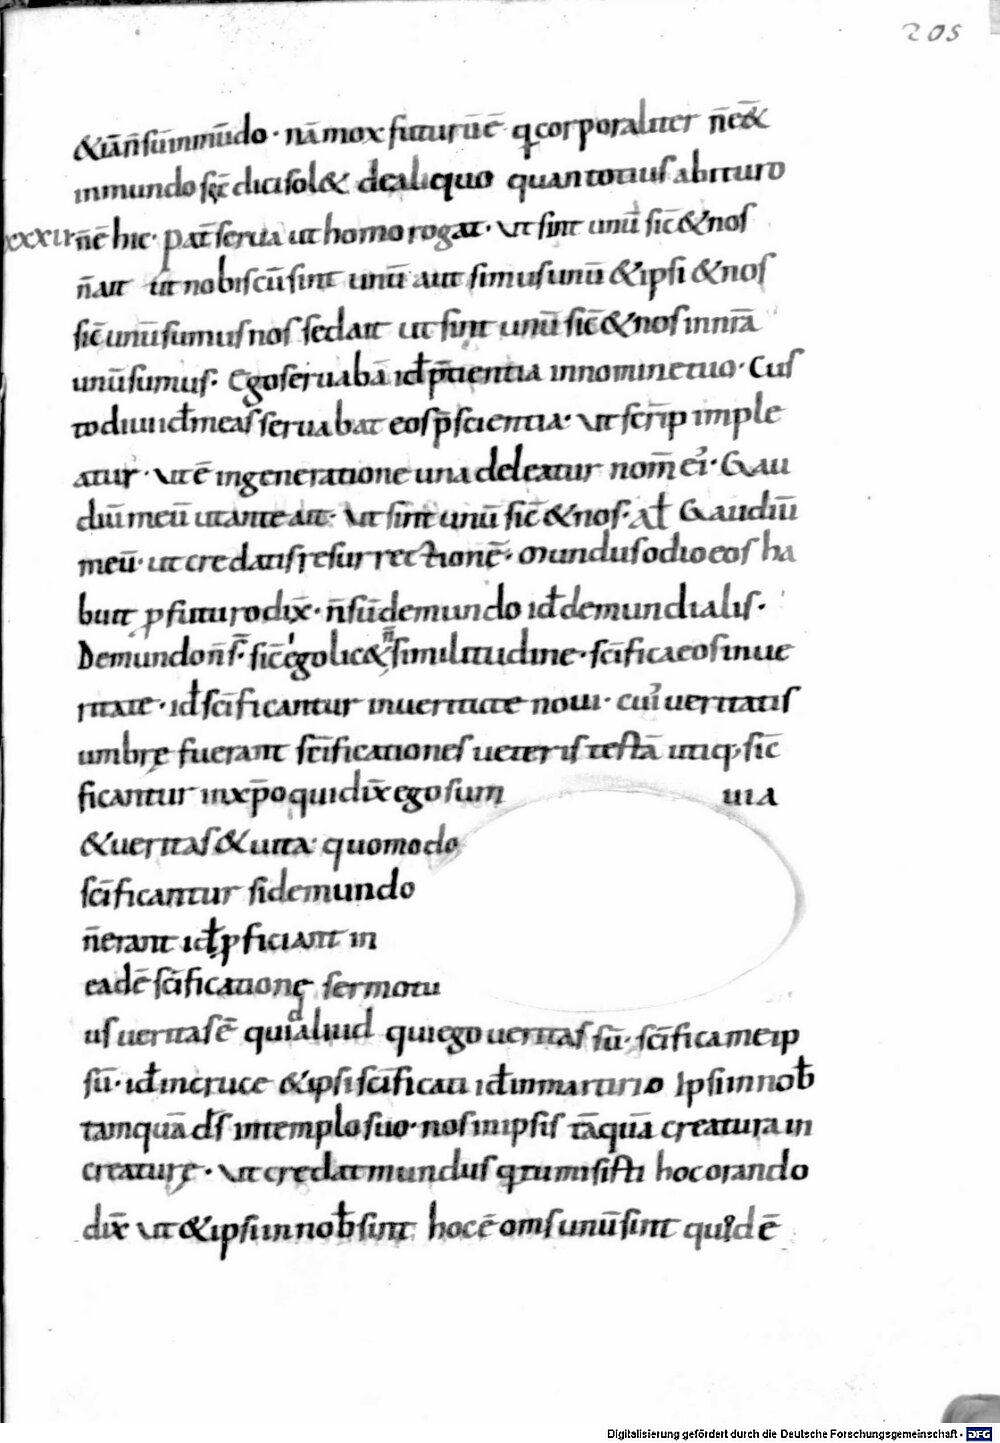 205
&iā n̄ sū inmūdo · nā mox futurū ē q corporaliter n̄ e&
inmundo sic̄ dici sol& de aliquo quantotius abituro
xxxii n̄ ē hic · pat̄ serua ut homo rogat · Ut sint unū sic̄ & nos
n̄ ait ut nobiscū sint unū aut simus unū & ipsi & nos
sic̄ unū sumus nos sed ait ut sint unū sic̄ & nos in nr̄a
unū sumus · Ego seruabā id p̄ tientia innomine tuo · Cus
todiui id meas seruabat eos p̄scientia · Ut script imple
atur · Ut ē ingeneratione una deleatur nom̄ ei · Gau
diū meū ut ante ait · Ut sint unū sic̄ & nos · at Gaudiū
meū · ut credatis resurrectionē · mundus odio eos ha
buit p futuro dix̄ · n̄ sū de mundo id de mundialis ·
De mundo n̄ s̄ · sic̄ ego lic& n̄ similitudine · sc̄ifica eos inue
ritate · id sc̄ificantur inueritate noui · cui ueritatis
umbrę fuerant sc̄ificationes ueteris testā utiq; sic̄
ficantur inxp̄o qui dix̄ ego sum uia
& ueritas & uita · quomodo
sc̄ificantur si de mundo
n̄ erant id pficiant in
eadē sc̄ificatione sermo tu
us ueritas ē quid aliud qui ego ueritas sū · sc̄ifica me ip
sū · id incruce & ipsi sc̄ificati id inmartirio Ipsi innob
tamquā ds̄ intemplo suo · nos inipsis tāquā creatura in
creaturę · Ut credat mundus q tu misisti hoc orando
dix̄ Ut & ipsi innob sint hoc ē oms unū sint quid ē
Digitalisierung gefördert durch die Deutsche Forschungsgemeinschaft - DFG